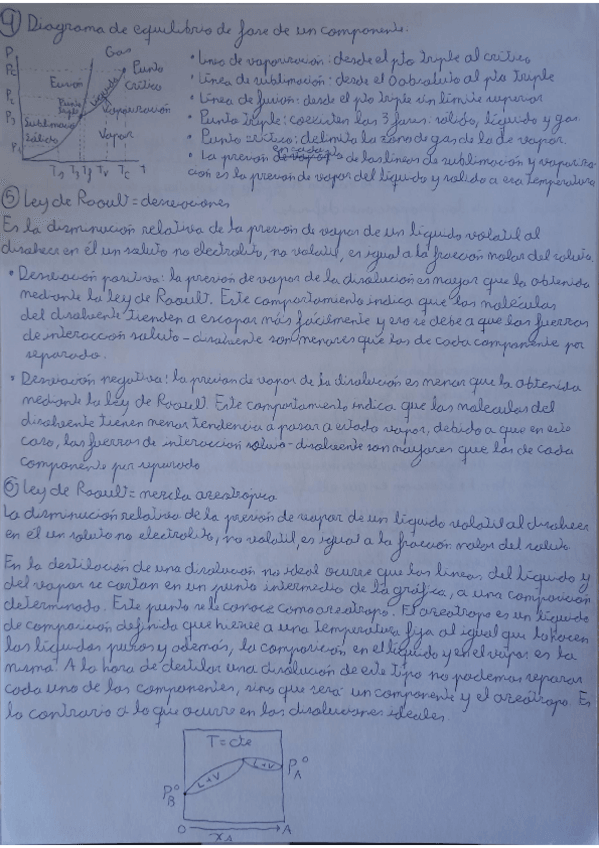 4 Diagrama de equilibrio de fase de un componente.
P
Pc
P2
P3
P1
Gas
Fusión
Punto
Crítico
Punto
Triple
Líquido
Vaporización
Sublimación
Sólido
Vapor
Ts Tf Tv Tc t
• Línea de vaporización: desde el pto triple al crítico
• Línea de sublimación: desde el 0 absoluto al pto triple
• Línea de fusión: desde el pto triple sin límite superior
• Punto triple: coexisten las 3 fases: sólido, líquido y gas.
• Punto crítico: delimita la zona de gas de la de vapor.
• La presión en cada de las líneas de sublimación y vaporiza-
ción es la presión de vapor del líquido y sólido a esa temperatura
5 Ley de Raoult = desviaciones
Es la disminución relativa de la presión de vapor de un líquido volátil al
disolver en él un soluto no electrolito, no volátil, es igual a la fracción molar del soluto.
• Desviación positiva: la presión de vapor de la disolución es mayor que la obtenida
mediante la ley de Raoult. Este comportamiento indica que las moléculas
del disolvente tienden a escapar más fácilmente y eso se debe a que las fuerzas
de interacción soluto-disolvente son menores que las de cada componente por
separado.
• Desviación negativa: la presión de vapor de la disolución es menor que la obtenida
mediante la ley de Raoult. Este comportamiento indica que las moléculas del
disolvente tienen menor tendencia a pasar a estado vapor, debido a que en este
caso, las fuerzas de interacción soluto-disolvente son mayores que las de cada
componente por separado
6 Ley de Raoult = mezcla azeotrópica
La disminución relativa de la presión de vapor de un líquido volátil al disolver
en él un soluto no electrolito, no volátil, es igual a la fracción molar del soluto.
En la destilación de una disolución no ideal ocurre que las líneas del líquido y
del vapor se cortan en un punto intermedio de la gráfica, a una composición
determinada. Este punto se le conoce como azeótropo. El azeótropo es un líquido
de composición definida que hierve a una temperatura fija al igual que lo hacen
los líquidos puros y además, la composición en el líquido y en el vapor es la
misma. A la hora de destilar una disolución de este tipo no podemos separar
cada uno de los componentes, sino que será un componente y el azeótropo. Es
lo contrario a lo que ocurre en las disoluciones ideales.
T = cte
L+V
L+V
P°B
P°A
0
XA
A